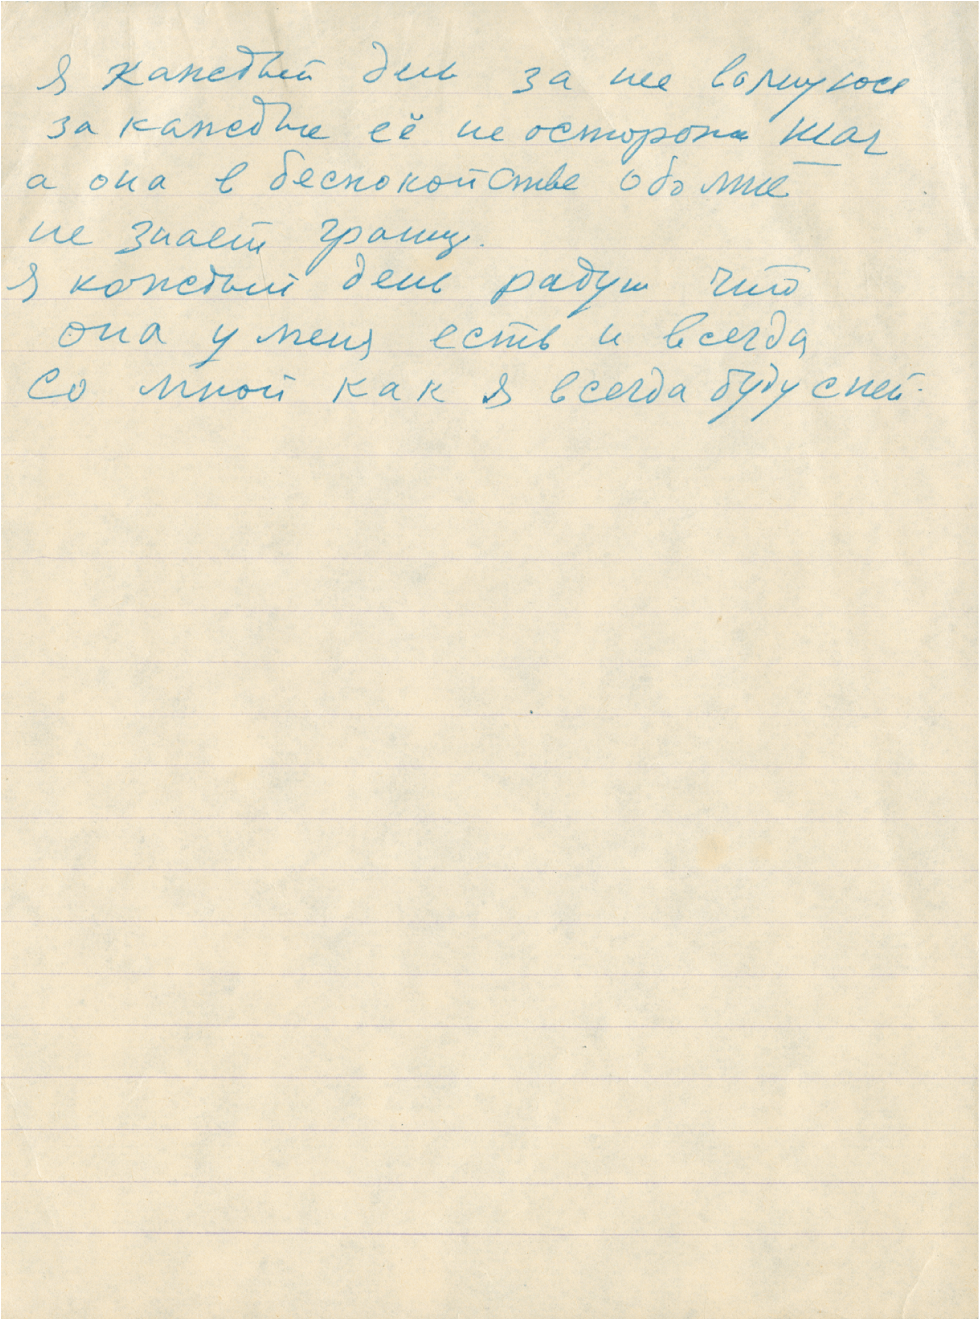 Я каждый день за нее волнуюсь
за каждые её неосторожн шаг
а она в беспокойстве обо мне
не знает границ.
Я каждый день радуш что
она у меня есть и всегда
со мной как я всегда буду с ней.